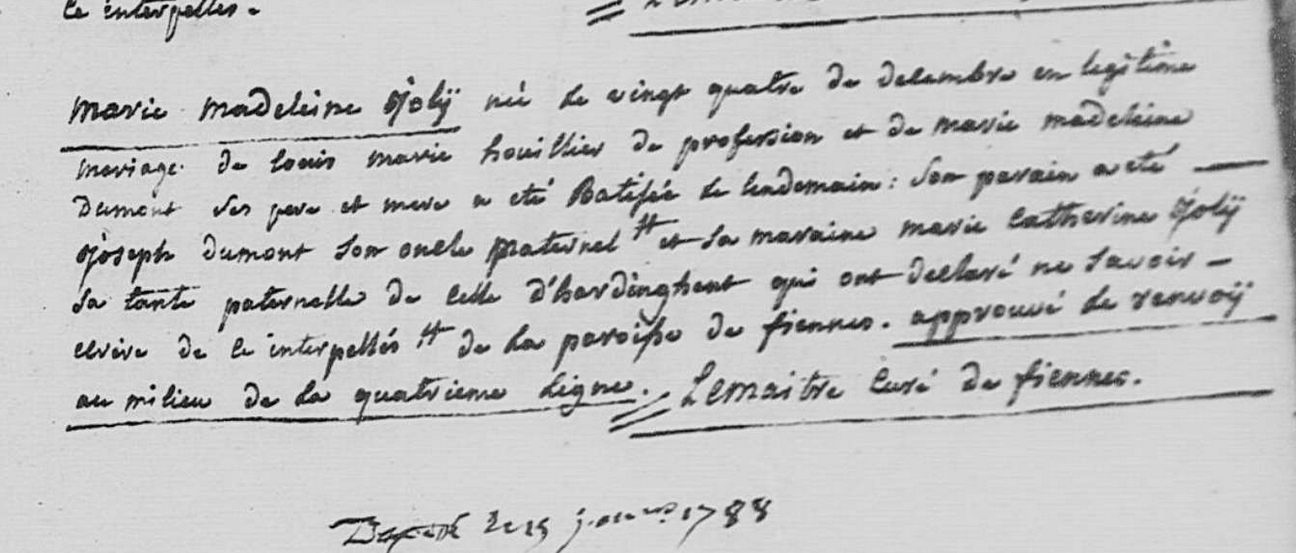 ce interpellés.
marie madeleine Joly née le vingt quatre de decembre en legitime
mariage de louis marie houillier de profession et de marie madeleine
Dumont ses pere et mere a eté Batisée le lendemain : son parain a eté —
Joseph Dumont son oncle paternel # et sa maraine marie Catherine Joly
sa tante paternelle de celle d'hardinghent qui ont declaré ne savoir —
ecrire de ce interpellés # de la paroisse de fiennes. approuvé le renvoÿ
au milieu de la quatrieme ligne. Lemaitre Curé de fiennes.
1788